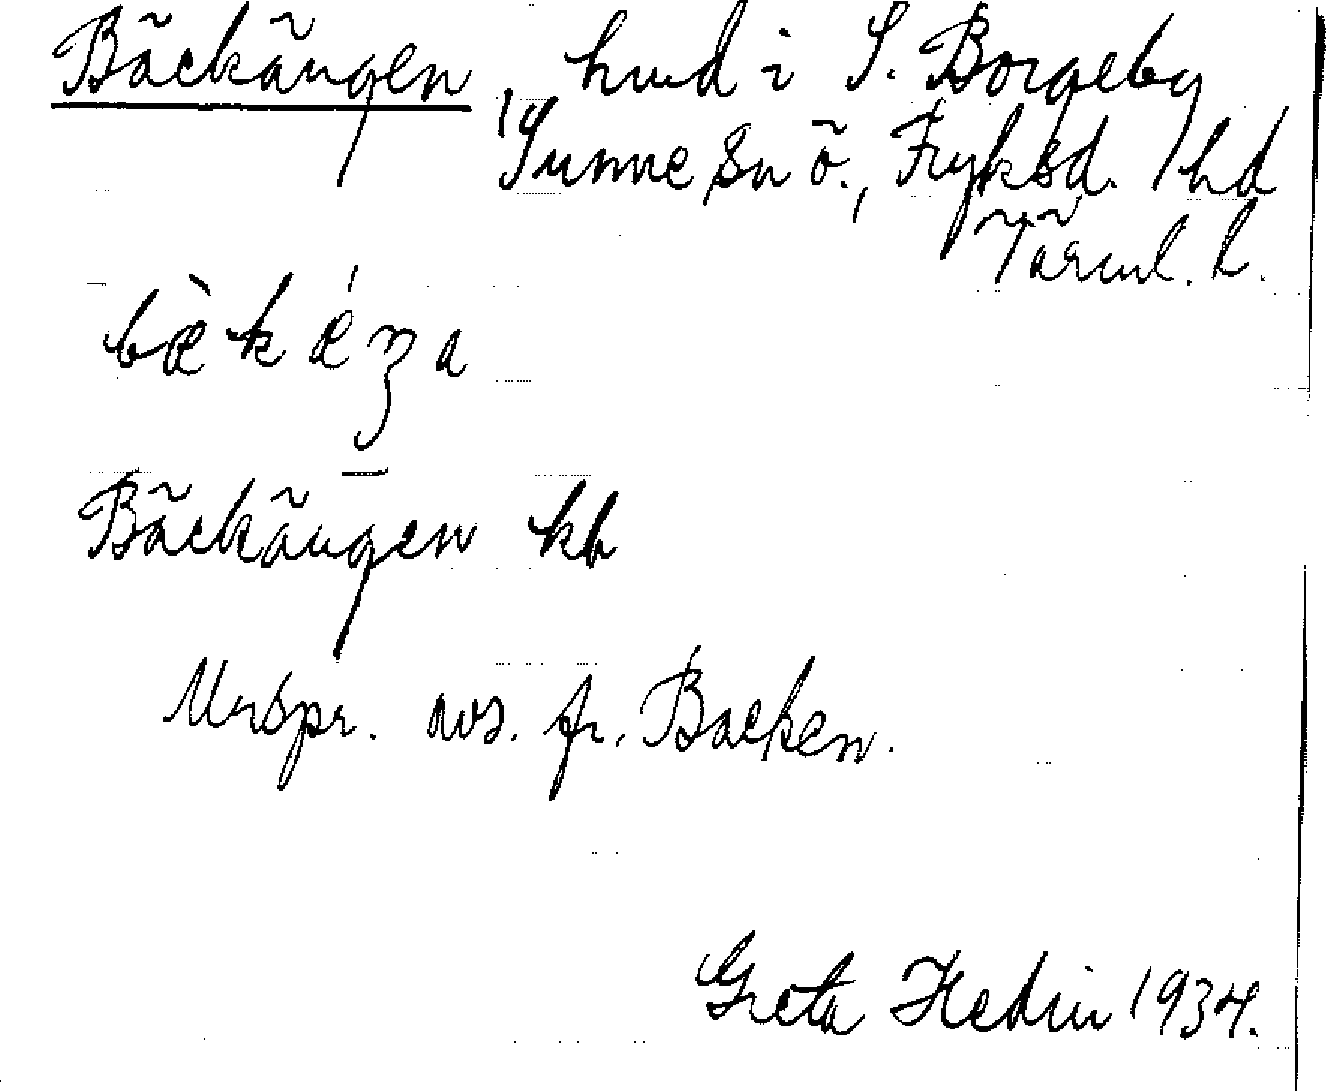 Bäckängen, hmd i S. Borgeby
Sunne sn ö., Fryksd. hd
Värml. l.
bæ̀kǽŋa
Bäckängen kb
Urspr. avs. fr. Backen.
Greta Hedin 1934.